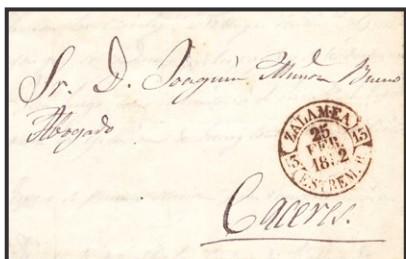 Sr. D. Joaquin Munoz Bueno
Abogado
ZALAMEA
25
FEB.
15 15
ESTREM. B.
Caceres.